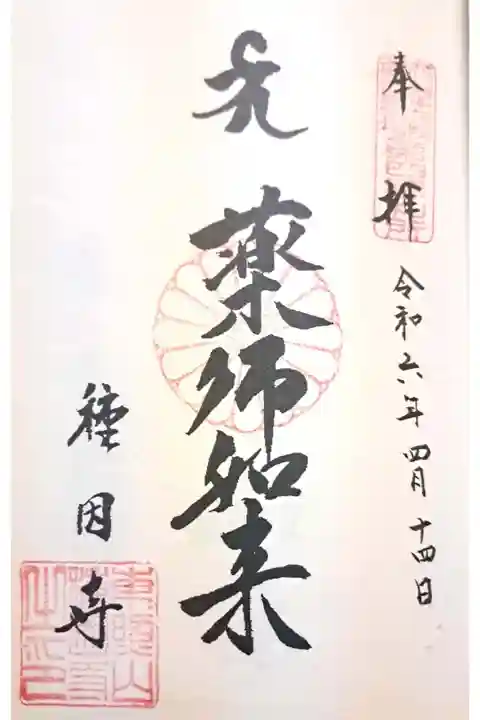 奉拝
令和六年四月十四日
薬师如来
種因寺